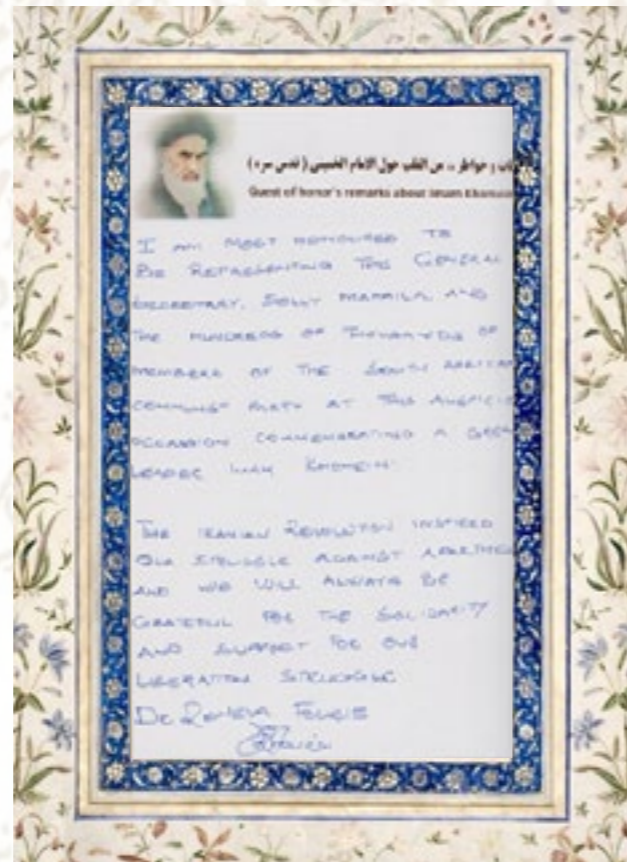 و خواطر .. من القلب حول الامام الخميني ( قدس سره )
Guest of honor's remarks about Imam
I AM MOST HONOURED TO
BE REPRESENTING THE GENERAL
SECRETARY, SOLLY MAPAILA AND
THE HUNDREDS OF THOUSANDS OF
MEMBERS OF THE SOUTH AFRICAN
COMMUNIST PARTY AT THIS
OCCASION COMMEMORATING A
LEADER IMAM
THE IRANIAN REVOLUTION INSPIRED
OUR STRUGGLE AGAINST
AND WE WILL ALWAYS BE
GRATEFUL FOR THE SOLIDARITY
AND SUPPORT FOR OUR
LIBERATION STRUGGLE
DR